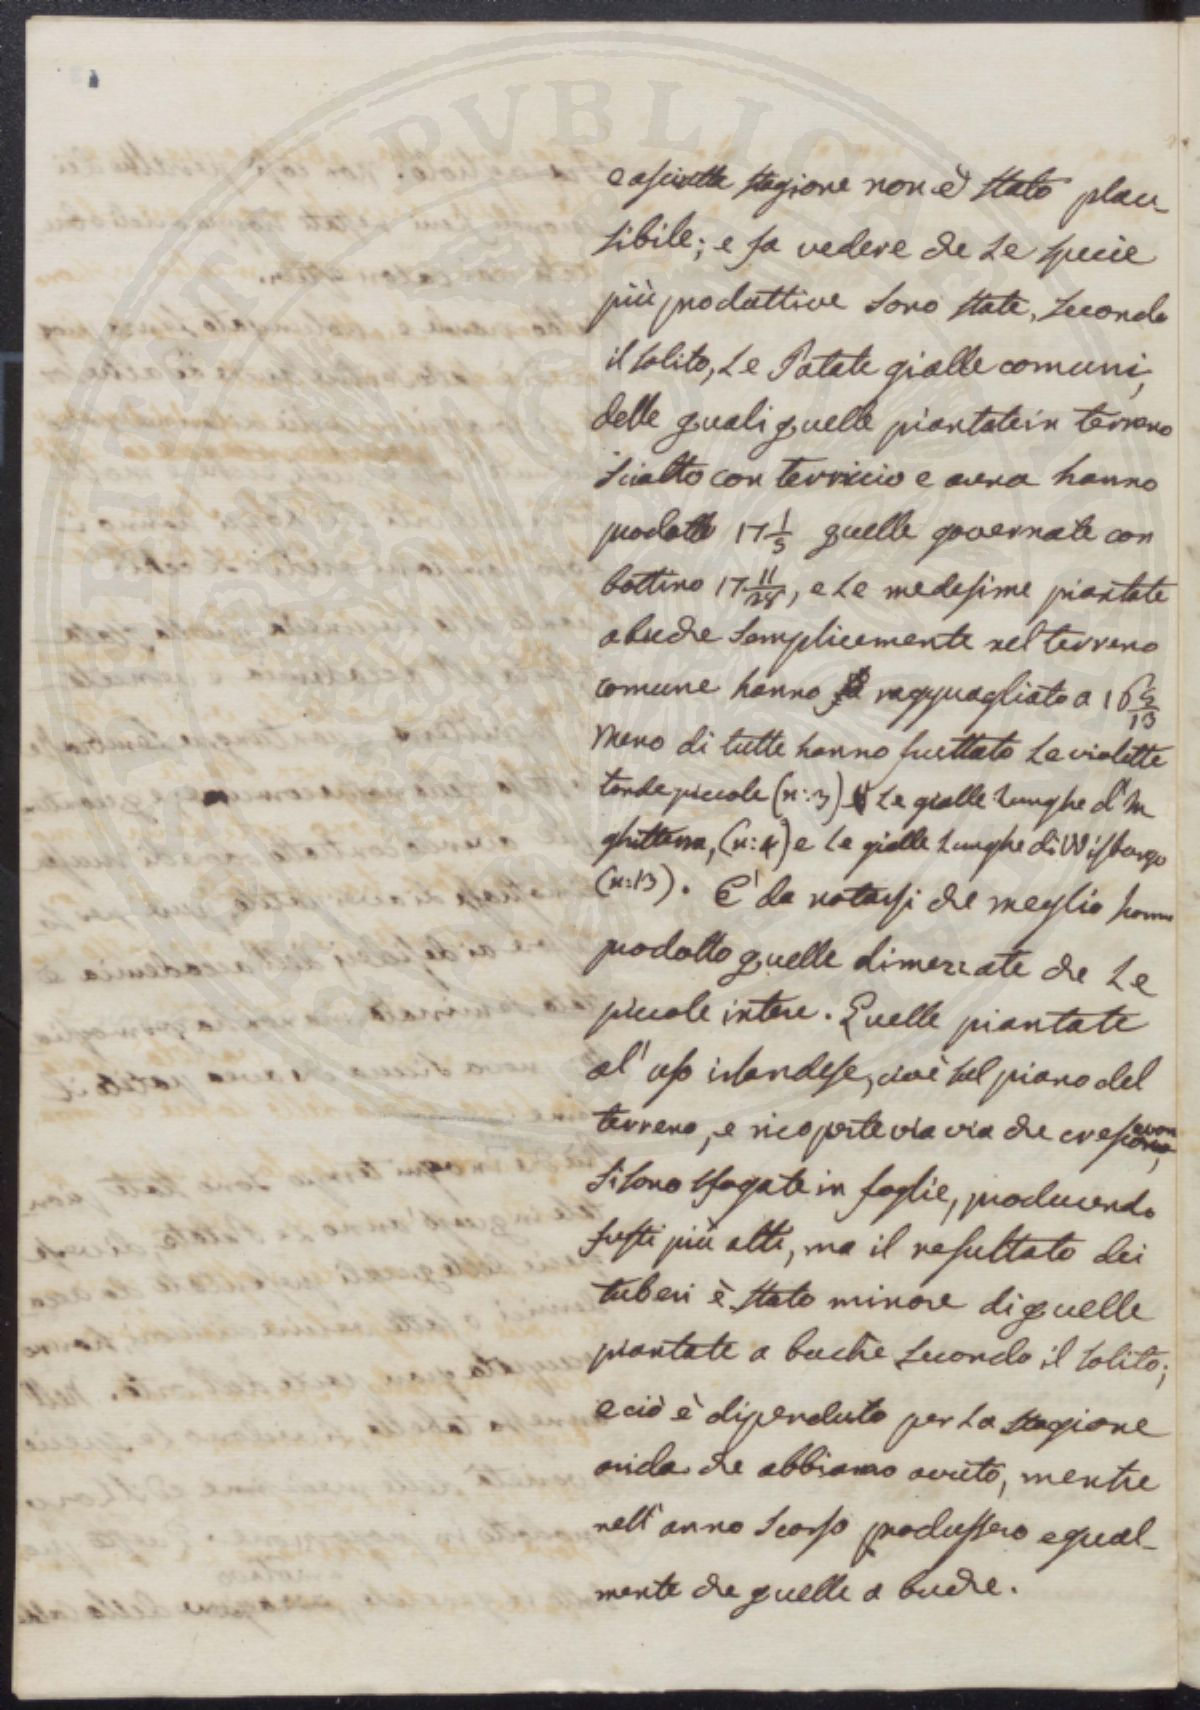 e asciutta stagione non è stato plau-
sibile; e fa vedere che le specie
più produttive sono state, secondo
il solito, le Patate gialle comuni,
delle quali quelle piantate in terreno
sciolto con terriccio e arena hanno
prodotto 17 1/3 quelle governate con
bottino 17 11/28, e le medesime piantate
a buche semplicemente nel terreno
comune hanno ragguagliato a 16 5/13
Meno di tutte hanno fruttato le violette
tonde piccole (n: 3) le gialle lunghe d'In
ghilterra, (n: 4) e le gialle lunghe di Wisburgo
(n: 13). E' da notarsi che meglio hanno
prodotto quelle dimezzate che le
piccole intere. Quelle piantate
al' uso irlandese, cioè sul piano del
terreno, e ricoperte via via che crescevan,
si sono sfogate in foglie, producendo
fusti più alti, ma il resultato dei
tuberi è stato minore di quelle
piantate a buche secondo il solito;
e ciò è dipenduto per la stagione
arida che abbiamo avuto, mentre
nell'anno scorso produssero egual-
mente che quelle a buche.